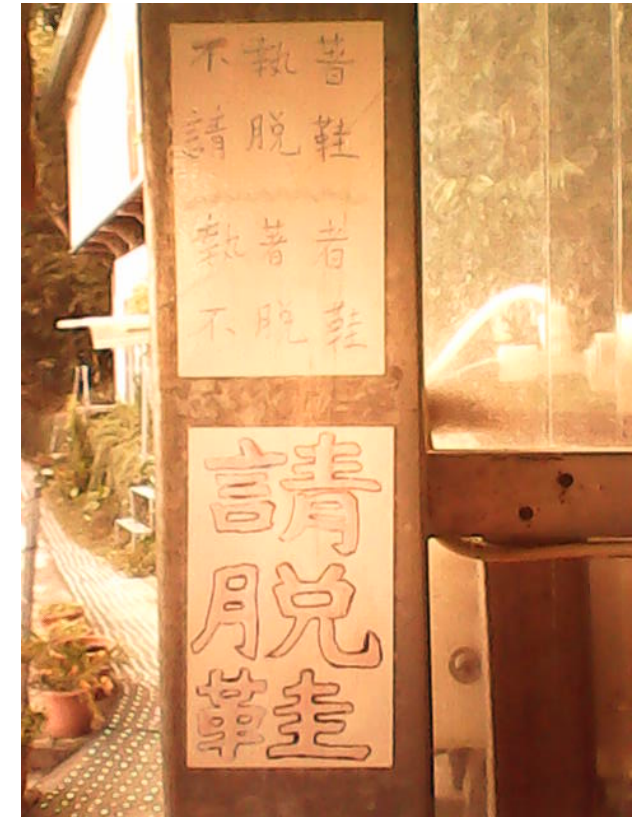 不執著
請脫鞋
執著者
不脫鞋
請
脫
鞋